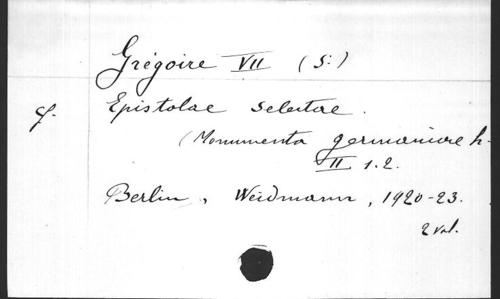 Grégoire VII (S:)
Epistolae selectae.
(Monumenta germaniae h.
II 1.2.
Berlin, Weidmann, 1920-23.
2 vol.